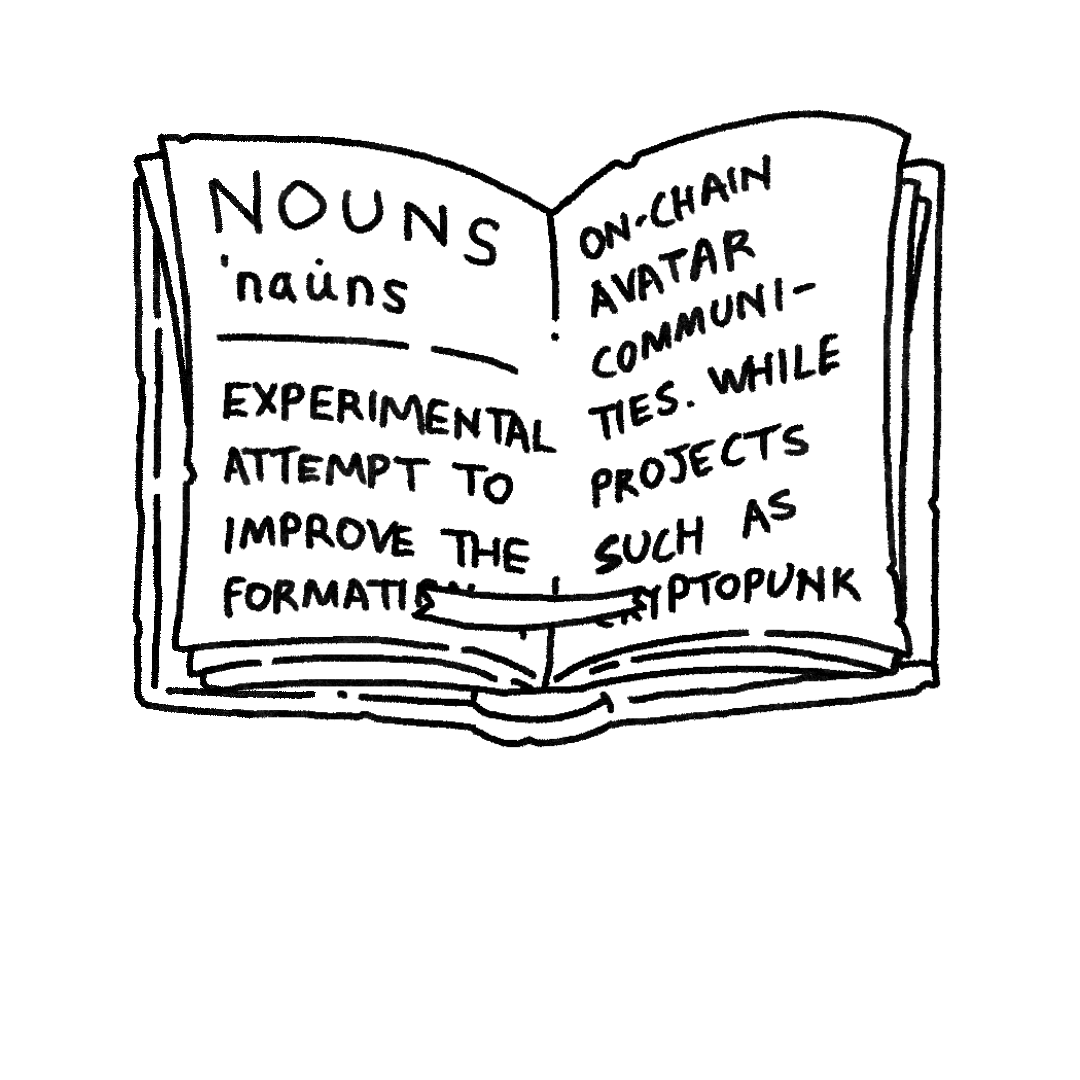 NOUNS
'naüns
EXPERIMENTAL
ATTEMPT TO
IMPROVE THE
ON-CHAIN
AVATAR
COMMUNI-
TIES. WHILE
PROJECTS
SUCH AS
CRYPTOPUNK